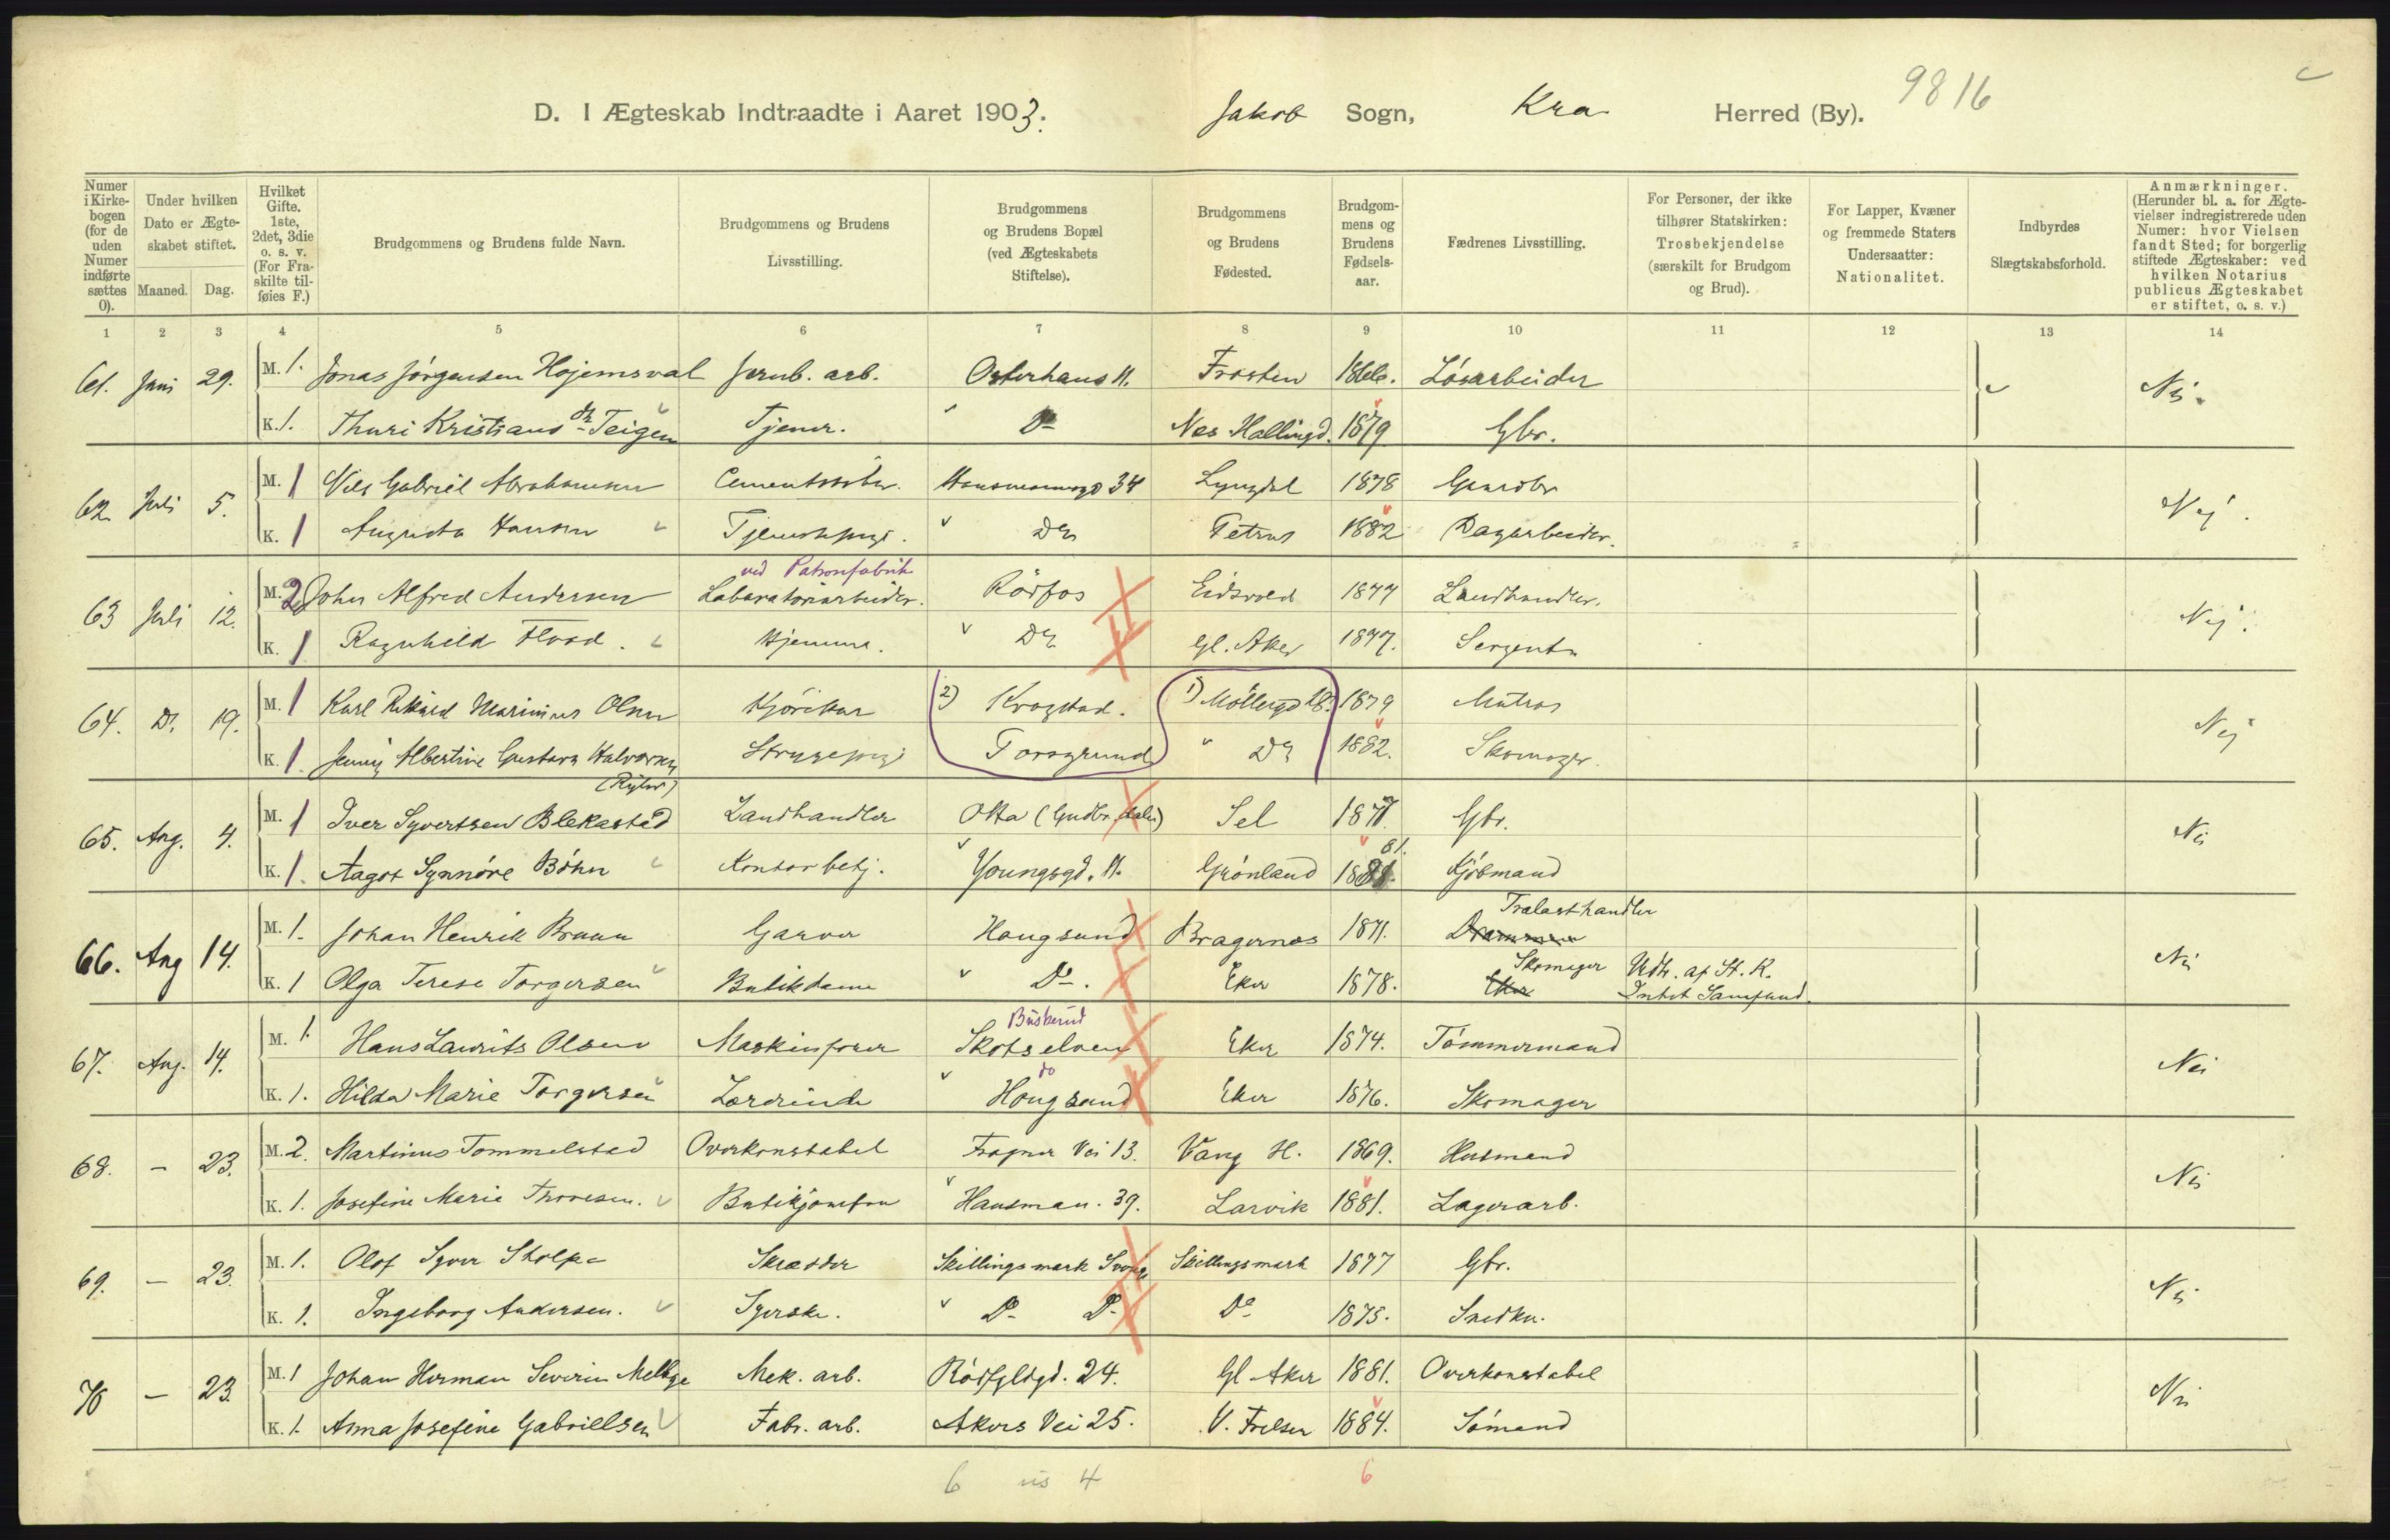 9816
D. I Ægteskab Indtraadte i Aaret 1903. Jakob Sogn, Kra Herred (By).
Numer i Kirkebogen (for de uden Numer indførte sættes 0).
Under hvilken Dato er Ægteskabet stiftet.
Maaned. Dag.
Hvilket Gifte. 1ste, 2det, 3die o. s. v. (For Fraskilte tilføies F.)
Brudgommens og Brudens fulde Navn.
Brudgommens og Brudens Livsstilling.
Brudgommens og Brudens Bopæl (ved Ægteskabets Stiftelse).
Brudgommens og Brudens Fødested.
Brudgommens og Brudens Fødselsaar.
Fædrenes Livsstilling.
For Personer, der ikke tilhører Statskirken: Trosbekjendelse (særskilt for Brudgom og Brud).
For Lapper, Kvæner og fremmede Staters Undersaatter: Nationalitet.
Indbyrdes Slægtskabsforhold.
Anmærkninger. (Herunder bl. a. for Ægtevielser indregistrerede uden Numer: hvor Vielsen fandt Sted; for borgerlig stiftede Ægteskaber: ved hvilken Notarius publicus Ægteskabet er stiftet, o. s. v.)
1 2 3 4 5 6 7 8 9 10 11 12 13 14
61. Juni 29. M. 1. Jonas Jørgensen Hojemsval Jernb. arb. Osterhaus 11. Frosten 1866. Løsarbeider Nei.
K. 1. Thuri Kristiansdr. Teigen Tjener. Do Nes Hallingd. 1879 Gbr.
62. Juli 5. M. 1 Nils Gabriel Abrahamsen Cementstøber. Hausmannsgd 34 Lyngdal 1878 Gaardbr Nej.
K. 1 Augusta Hansen Tjenestepige. Do Petrus 1882 Dagarbeider.
ved Patronfabrik
63 Juli 12. M. 2 John Alfred Andersen Laboratoriarbeider. Rösfos Eidsvold 1877 Landhandler. Nej.
K. 1 Ragnhild Flood. Hjemme. Do Gl. Aker 1877. Sergent
64. Do 19. M. 1 Karl Rikard Marinius Olsen Kjørekar 2) Krogstad. 1) Møllergd 18. 1879 Matros Nej
K. 1. Jenny Albertine Gustava Halvorsen Strygepige Porsgrund Do 1882. Skomager.
65. Aug. 4. M. 1 Iver Syvertsen Blekastad (Rylm) Landhandler Otta (Gudbr. dalen) Sel 1871. Gbr. Nei
K. 1. Aagot Synnøve Bøhn Kontorbetj. Youngsgd. 11. Grønland 1881. 81. Kjøbmand
Trælasthandler
66. Aug 14. M. 1. Johan Henrik Bruun Garver Hougsund Bragernæs 1871. Drammen Nei
Skomager
K. 1 Olga Terese Torgersen Butikdame Do. Eker 1878. Eker Udtr. af St. K. Intet Samfund.
Buskerud
67. Aug. 14. M. 1. Hans Laurits Olsen Maskinfører Skotselven Eker 1874. Tømmermand Nei
do
K. 1. Hilda Marie Torgersen Lærerinde Hougsund Eker 1876. Skomager
68. – 23. M. 2. Martinus Tommelstad Overkonstabel Frogner Vei 13. Vang H. 1869. Husmand Nei
K. 1. Josefine Marie Thoresen. Butikjomfru Hausman. 39. Larvik 1881. Lagerarb.
69. – 23. M. 1. Olof Syver Stolpe Skrædder Skillingsmark Sverige Skillingsmark 1877 Gbr. Nei
K. 1. Ingeborg Andersen. Syerske. Do Do Do 1875. Snedker.
70 – 23 M. 1 Johan Herman Severin Melbye Mek. arb. Rösfyldgd. 24. Gl Aker 1881. Overkonstabel Nei
K. 1. Anna Josefine Gabriellsen Fabr. arb. Akers Vei 25. V. Frelser 1884. Sømand
6 is 4 6